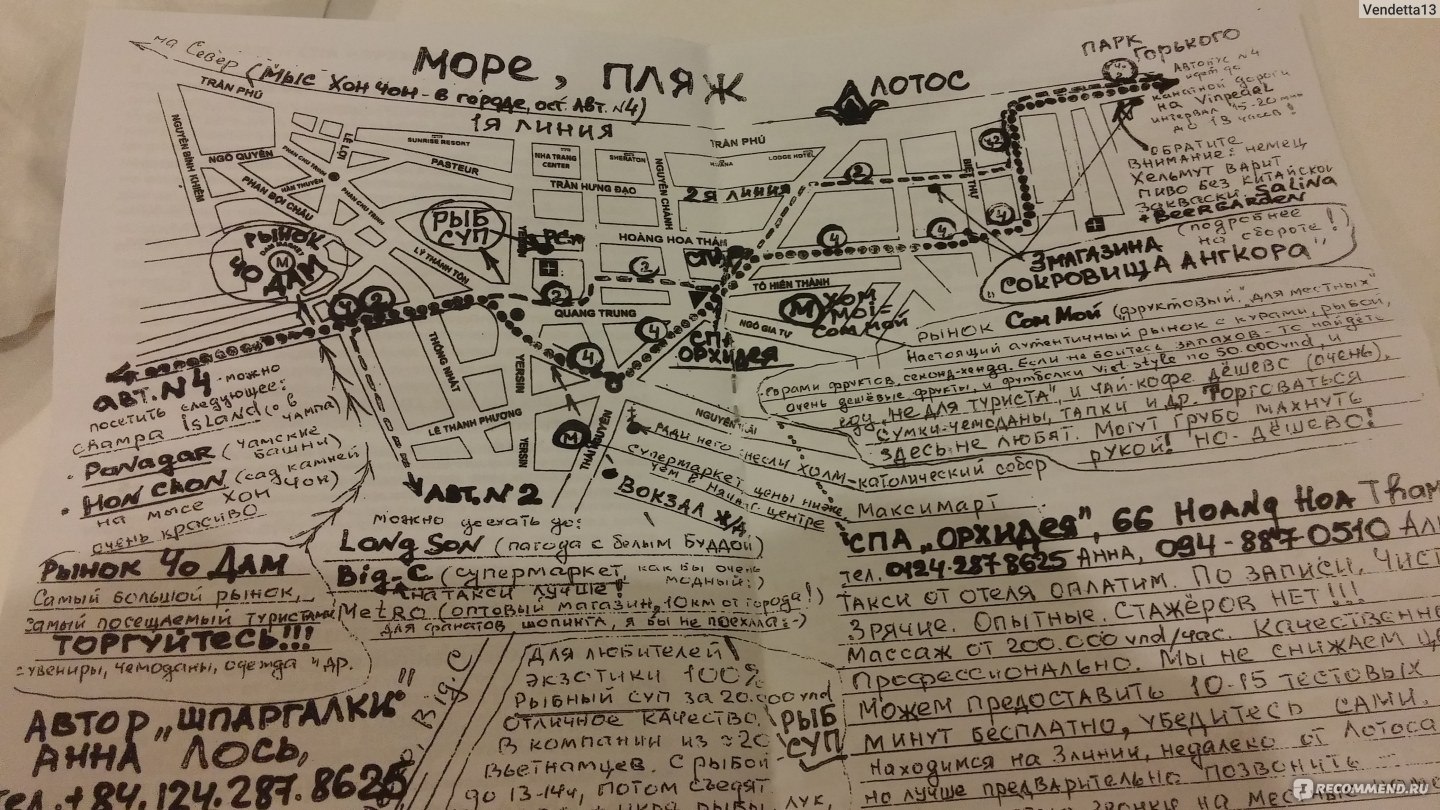 Vendetta13
на Север
МОРЕ, ПЛЯЖ
(МЫС ХОН ЧОН - В ГОРОДЕ, ОСТ. АВТ. №4)
1Я ЛИНИЯ
ЛОТОС
ПАРК
ГОРЬКОГО
4
АВТОБУС №4
идет до
канатной дороги
на Vinpearl
интервал 15-20 мин
до 18 часов!
ОБРАТИТЕ
ВНИМАНИЕ: немец
Хельмут ВАРИТ
ПИВО БЕЗ КИТАЙСКОЙ
ЗАКВАСКИ. SALINA
+ BEERGARDEN
(подробнее
на обороте!)
TRẦN PHÚ
NGUYỄN BỈNH KHIÊM
NGÔ QUYỀN
LÊ LỢI
PHAN CHU TRINH
HÀN THUYÊN
PHAN BỘI CHÂU
PHAN CHU TRINH
SUNRISE RESORT
PASTEUR
NHA TRANG
CENTER
SHERATON
NGUYỄN CHÁNH
TRẦN PHÚ
LODGE HOTEL
TRẦN HƯNG ĐẠO
2Я ЛИНИЯ
2
2
BIỆT THỰ
4
4
4
РЫБ
СУП
YERSIN
HOÀNG HOA THÁM
СПА
РЫНОК
М
ЧО ДАМ
LÝ THÁNH TÔN
2
2
4
2
TÔ HIẾN THÀNH
NGÔ GIA TỰ
М ХОМ
МОЙ=
СОМ МОЙ
3 МАГАЗИНА
"СОКРОВИЩА АНГКОРА"
QUANG TRUNG
4
4
СПА
ОРХИДЕЯ
THỐNG NHẤT
YERSIN
LÊ THÀNH PHƯƠNG
YERSIN
М
NGUYỄN TRÃI
РЫНОК СОМ МОЙ (фруктовый "для местных"
Настоящий аутентичный рынок с курами, рыбой,
горами фруктов, секонд-хенда. Если не боитесь запахов - то найдёте
очень дешёвые фрукты, и футболки Viet style по 50.000vnd, и
еду "не для туриста", и чай-кофе дёшево (очень),
Сумки-чемоданы, тапки и др. Торговаться
здесь не любят. Могут грубо махнуть
рукой! Но - дёшево!
АВТ. №4 - можно
посетить следующее:
Champa island (о-в
чампа)
• Panagar (чамские
башни)
• Hon Chon (сад камней
на мысе ХОН ЧОН)
очень красиво
АВТ. №2
можно доехать до:
Long Son (пагода с белым Буддой)
Big-C (супермаркет как бы очень
модный:)
на такси лучше!
Metro (оптовый магазин, 10 км от города!)
для фанатов шопинга, я бы не поехала:-)
ВОКЗАЛ Ж/Д
ради него несли холм - католический собор
Супермаркет цены ниже,
чем в Нячанг. центре
Максимарт
РЫНОК ЧО ДАМ
Самый большой рынок,
самый посещаемый туристами
ТОРГУЙТЕСЬ!!!
сувениры, чемоданы, одежда и др.
АВТОР "ШПАРГАЛКИ"
АННА ЛОСЬ,
тел. +84.124.287.8625
Big.C
ДЛЯ ЛЮБИТЕЛЕЙ
ЭКЗОТИКИ 100%
РЫБНЫЙ СУП за 20.000vnd
ОТЛИЧНОЕ КАЧЕСТВО.
В компании из ≈20
Вьетнамцев. С рыбой
до 13-14ч, Потом съедят
рыбы, лук,
РЫБ
СУП
СПА "ОРХИДЕЯ", 66 HOANG HOA Tham
тел. 0124.287 8625 Анна, 094-8870510
Такси от отеля оплатим. По записи, Чист
Зрячие. Опытные. Стажёров НЕТ!!!
Массаж от 200.000 vnd/час. Качественно
Профессионально. Мы не снижаем
Можем предоставить 10-15 тестовых
минут бесплатно, убедитесь сами.
Находимся на 3 линии, недалеко от Лотоса
но лучше предварительно позвонить -
звоните на
IRECOMMEND.RU